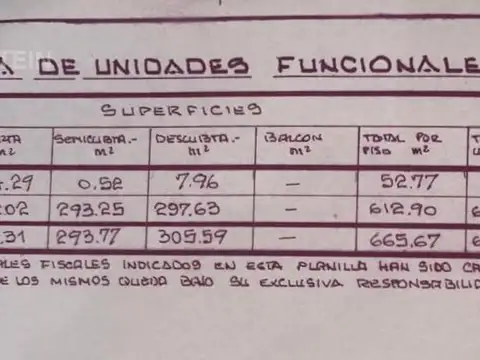 TEIN
A DE UNIDADES FUNCIONALE
SUPERFICIES
RTA SEMICUBTA.- DESCUBTA.- BALCON TOTAL POR T
m² m² m² m² PISO m² U
.29 0.52 7.96 — 52.77
.02 293.25 297.63 — 612.90 6
.31 293.77 305.59 — 665.67 6
ALES FISCALES INDICADOS EN ESTA PLANILLA HAN SIDO CA
E LOS MISMOS QUEDA BAJO SU EXCLUSIVA RESPONSABILIDA